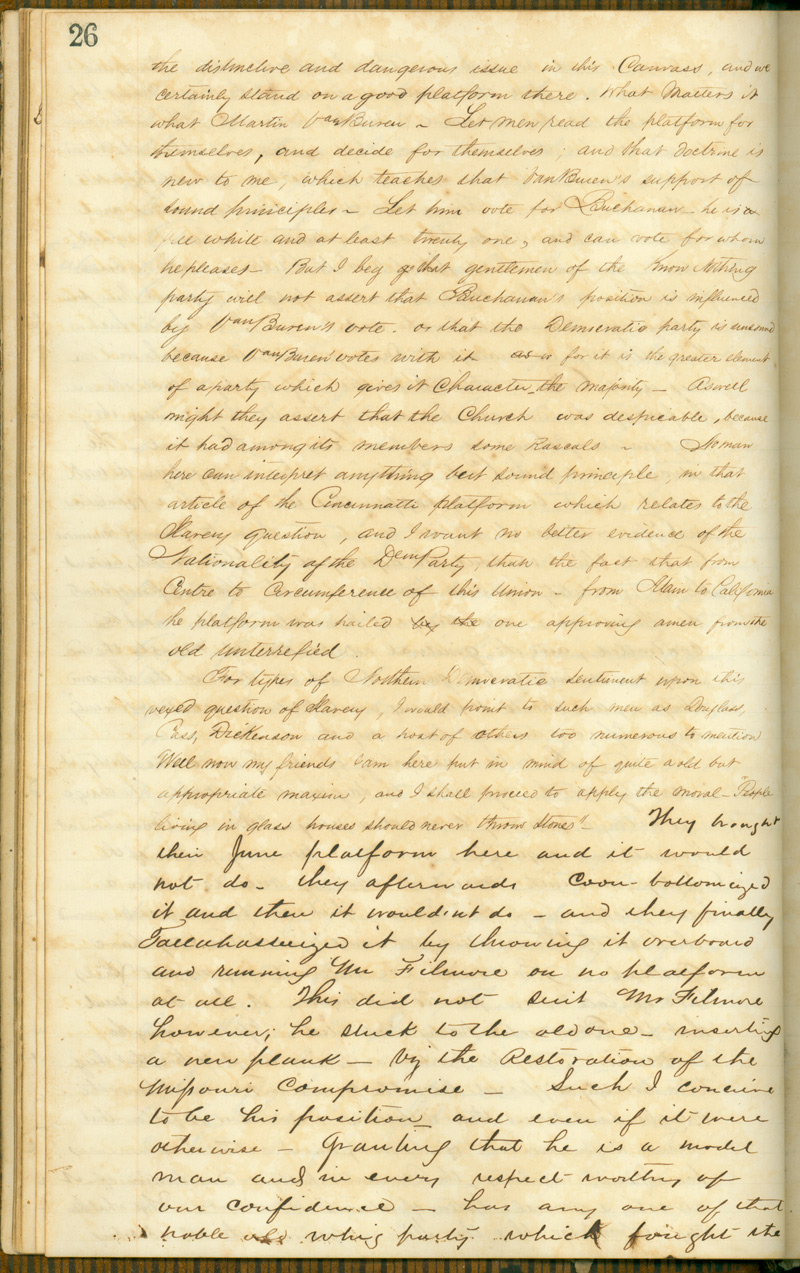 26
the distinctive and dangerous issue in this Canvass, and we
certainly stand on a good platform there. What Matters it
what Martin Van Buren ~ Let men read the platform for
themselves, and decide for themselves; and that doctrine is
new to me, which teaches that VanBuren's support of
sound principles ~ Let him vote for Buchanan - he is a
free white and at least twenty one, and can vote for whom
he pleases - But I beg that gentlemen of the Know Nothing
party will not assert that Buchanan's position is influenced
by VanBuren's vote. or that the Democratic party is unsound
because VanBuren votes with it for it is the greater element
of a party which gives it Character - the majority - As well
might they assert that the Church was despicable, because
it had among its members some Rascals ~ No man
here can interpret anything but sound principle, in that
article of the Cincinnatti platform which relates to the
Slavery question, and I want no better evidence of the
Nationality of the Dem Party, than the fact that from
Centre to Circumference of this Union - from Main to California
he platform was hailed by the one approving amen from the
old unterrified.
For types of Northern Democratic Sentiment upon this
vexed question of Slavery, I would point to such men as Douglass,
Cass, Dickenson and a host of others too numerous to mention
Well now my friends I am here put in mind of quite a old but
appropriate maxim, and I shall proceed to apply the moral - "People
living in glass houses should never throw stones" - They brought
their June platform here and it would
not do - they afterwards Coon-bottomized
it and then it wouldn't do - and they finally
Tallahasseeized it by throwing it overboard
and running Mr Filmore on no platform
at all. This did not suit Mr Filmore
however; he stuck to the old one - inserting
a new plank - by the Restoration of the
Missouri Compromise - Such I conceive
to be his position - and even if it were
otherwise - Granting that he is a model
man and in every respect worthy of
our confidence - has any one of that
noble old whig party which fought the